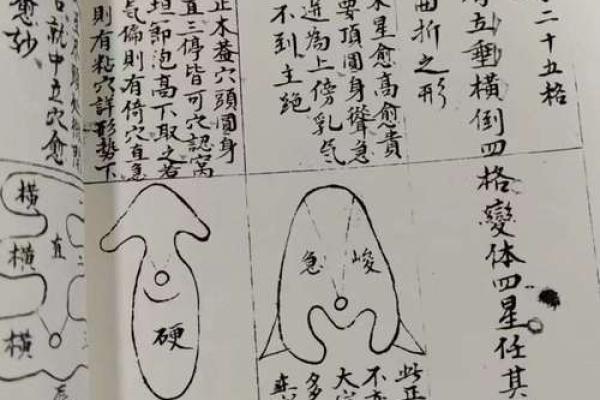 二十五格
立垂橫倒四格變体四星任其
曲折之形
木星愈高愈貴
要頂圓身聳急
逆為上傍乳气
不到主绝
正木蓋穴頭圓身
直三停皆可穴認窩
坦節泡高下取之若
气偏則有倚穴直急
則有粘穴詳形勢下
愈妙
就中立穴愈
急
峻
此正
不
大
多
硬
橫
直
橫
橫